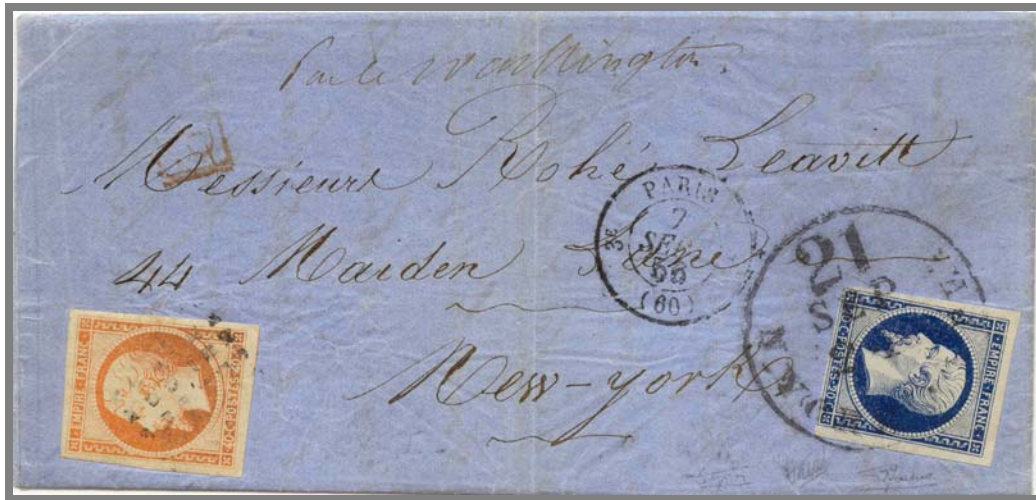 Par le Washington.
Messieurs Rohé Leavitt
44 Maiden Lane
New-york
PARIS
3E
7
SEP.
(60)
21
EMPIRE·FRANC·
40·C·POSTES·40·C
EMPIRE·FRANC·
20·C·POSTES·20·C